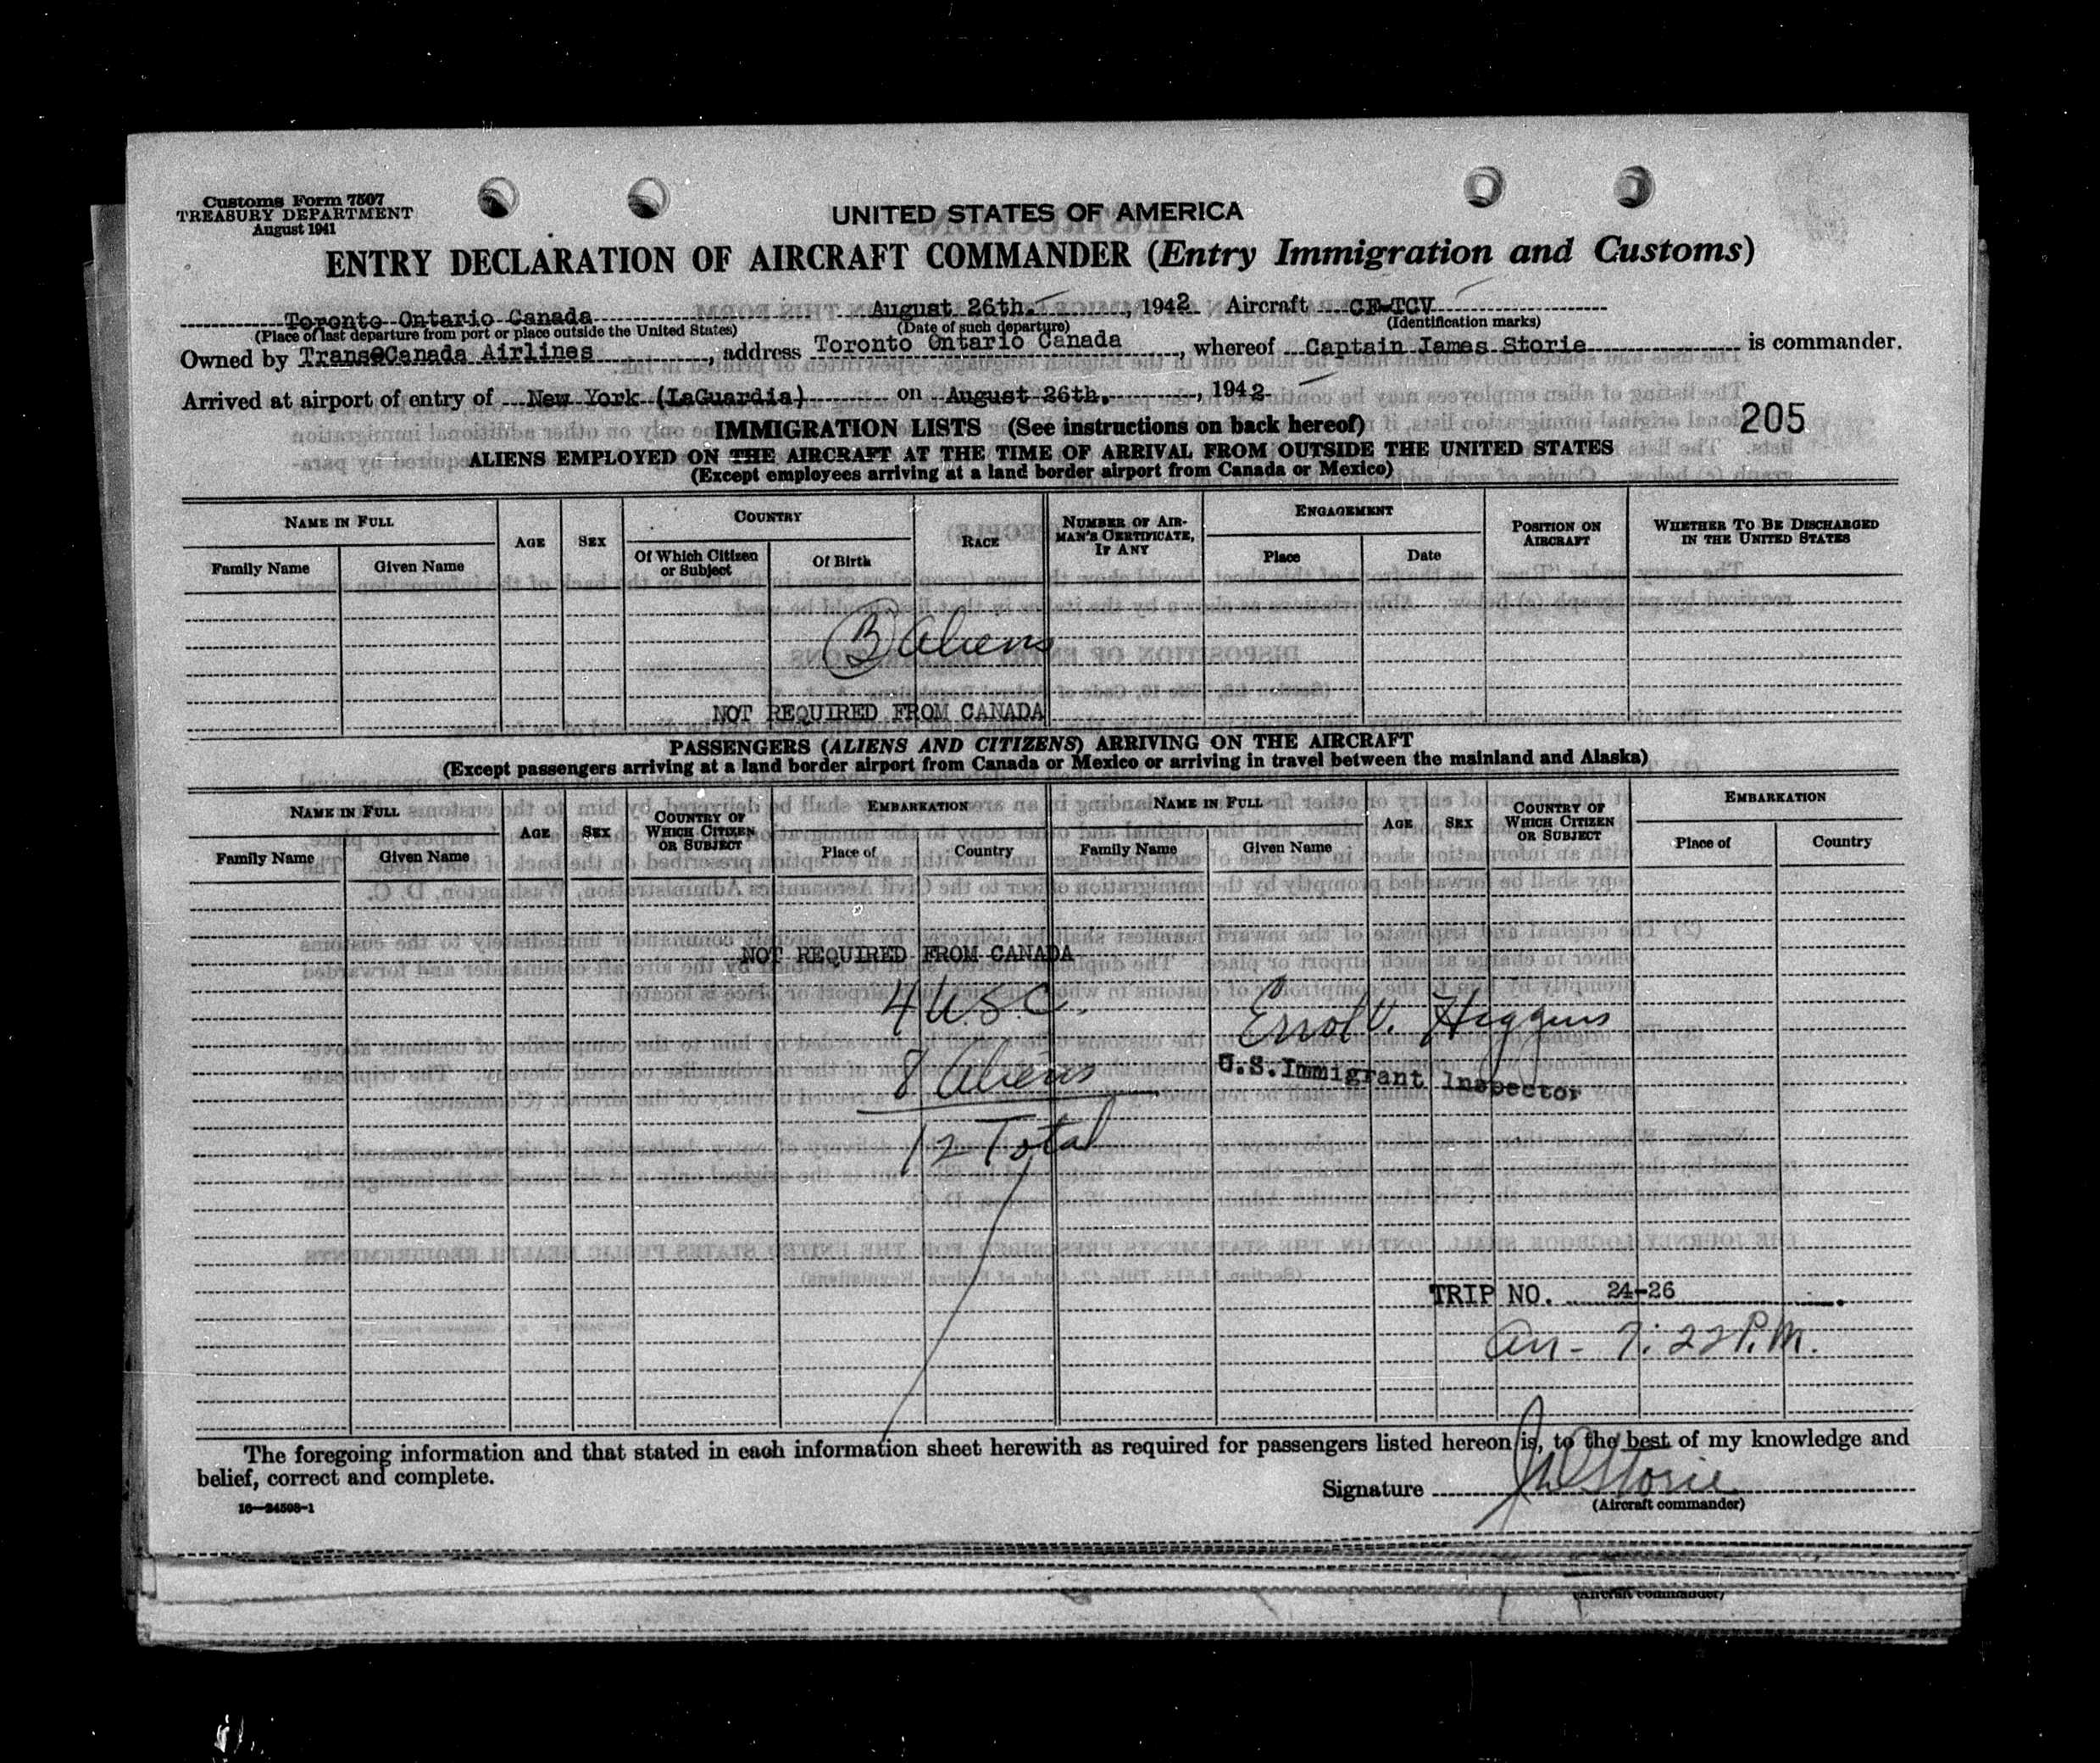 Customs Form 7507
TREASURY DEPARTMENT
August 1941
UNITED STATES OF AMERICA
ENTRY DECLARATION OF AIRCRAFT COMMANDER (Entry Immigration and Customs)
Toronto Ontario Canada August 26th. , 1942 Aircraft CF-TCV
(Place of last departure from port or place outside the United States) (Date of such departure) (Identification marks)
Owned by Trans@Canada Airlines , address Toronto Ontario Canada , whereof Captain James Storie is commander.
Arrived at airport of entry of New York (LaGuardia) on August 26th. , 1942
205
IMMIGRATION LISTS (See instructions on back hereof)
ALIENS EMPLOYED ON THE AIRCRAFT AT THE TIME OF ARRIVAL FROM OUTSIDE THE UNITED STATES
(Except employees arriving at a land border airport from Canada or Mexico)
NAME IN FULL
Family Name Given Name
AGE SEX
COUNTRY
Of Which Citizen or Subject Of Birth
RACE
NUMBER OF AIR-
MAN'S CERTIFICATE,
IF ANY
ENGAGEMENT
Place Date
POSITION ON
AIRCRAFT
WHETHER TO BE DISCHARGED
IN THE UNITED STATES
Aliens
NOT REQUIRED FROM CANADA
PASSENGERS (ALIENS AND CITIZENS) ARRIVING ON THE AIRCRAFT
(Except passengers arriving at a land border airport from Canada or Mexico or arriving in travel between the mainland and Alaska)
NAME IN FULL
Family Name Given Name
AGE SEX
COUNTRY OF
WHICH CITIZEN
OR SUBJECT
EMBARKATION
Place of Country
NAME IN FULL
Family Name Given Name
AGE SEX
COUNTRY OF
WHICH CITIZEN
OR SUBJECT
EMBARKATION
Place of Country
NOT REQUIRED FROM CANADA
4 U.S.C.
Errol V. Higgins
8 Aliens
U.S. Immigrant Inspector
12 Total
TRIP NO. 24-26
Arr- 7:22 P.M.
The foregoing information and that stated in each information sheet herewith as required for passengers listed hereon is, to the best of my knowledge and
belief, correct and complete.
Signature JW Storie
(Aircraft commander)
16—24508-1
(Aircraft commander)